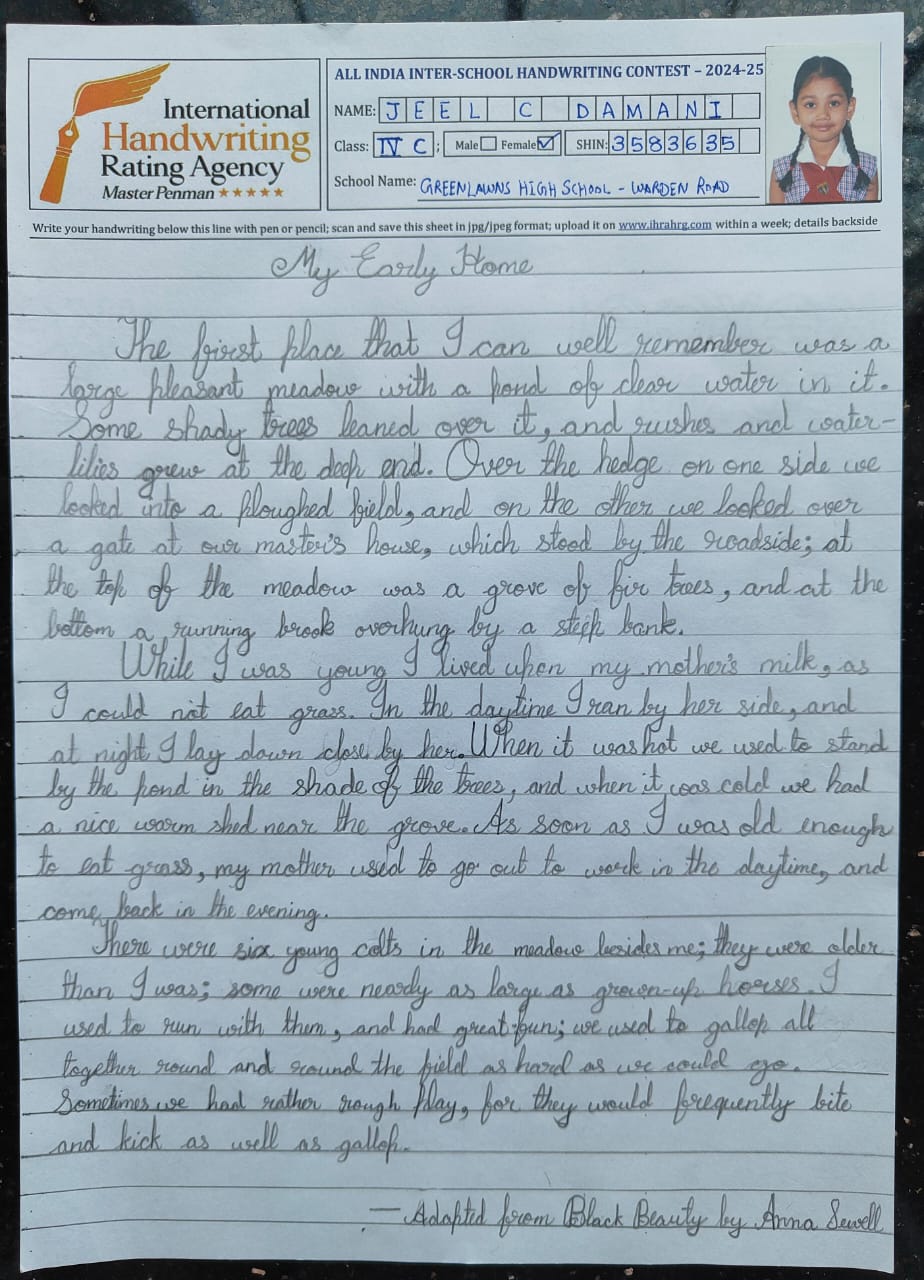 International
Handwriting
Rating Agency
Master Penman ★★★★★
ALL INDIA INTER-SCHOOL HANDWRITING CONTEST – 2024-25
NAME: JEEL C DAMANI
Class: IV C ; Male Female ✓ SHIN: 3583635
School Name: GREENLAWNS HIGH SCHOOL - WARDEN ROAD
Write your handwriting below this line with pen or pencil; scan and save this sheet in jpg/jpeg format; upload it on www.ihrahrg.com within a week; details backside
My Early Home
The first place that I can well remember was a
large pleasant meadow with a pond of clear water in it.
Some shady trees leaned over it, and rushes and water-
lilies grew at the deep end. Over the hedge on one side we
looked into a ploughed field, and on the other we looked over
a gate at our master's house, which stood by the roadside; at
the top of the meadow was a grove of fir trees, and at the
bottom a running brook overhung by a steep bank.
While I was young I lived upon my mother's milk, as
I could not eat grass. In the daytime I ran by her side, and
at night I lay down close by her. When it was hot we used to stand
by the pond in the shade of the trees, and when it was cold we had
a nice warm shed near the grove. As soon as I was old enough
to eat grass, my mother used to go out to work in the daytime, and
come back in the evening.
There were six young colts in the meadow besides me; they were older
than I was; some were nearly as large as grown-up horses. I
used to run with them, and had great fun; we used to gallop all
together round and round the field as hard as we could go.
Sometimes we had rather rough play, for they would frequently bite
and kick as well as gallop.
— Adapted from Black Beauty by Anna Sewell